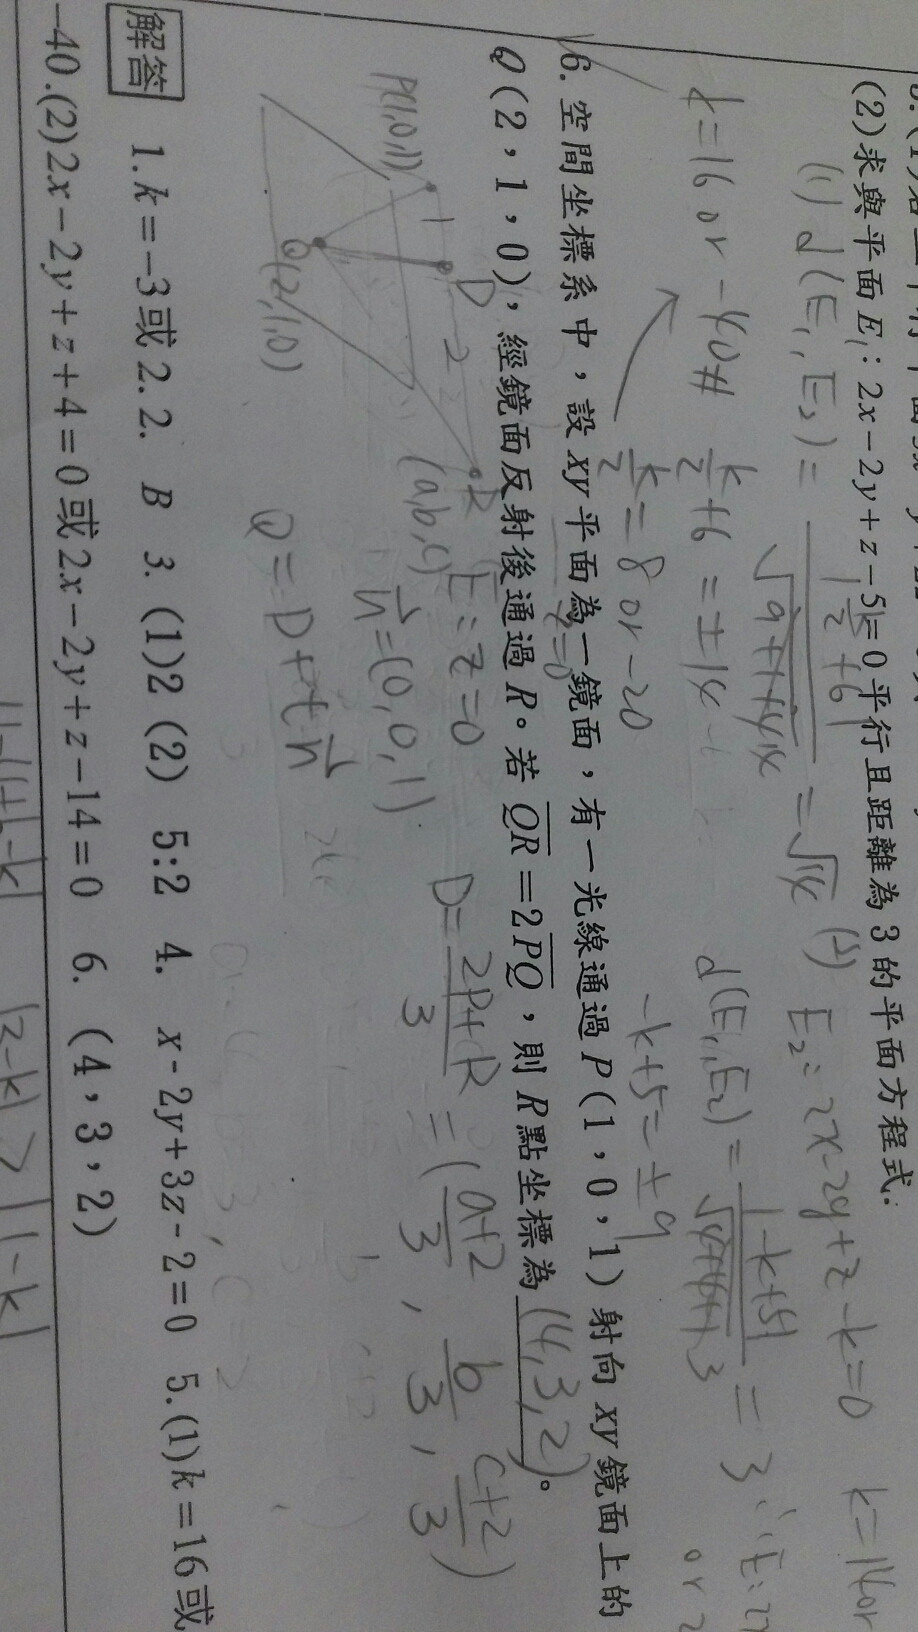 (2)求與平面E₁：2x－2y＋z－5＝0平行且距離為3的平面方程式：
(1) d(E₁, E₂) = |k/2+6| / √(9+1+4) = √14
(2) E₂: 2x-2y+z-k=0
k=14 or
k/2+6 = ±14
d(E₁,E₂) = |-k+5| / √(4+4+1) = 3
k=16 or -40#
k/2 = 8 or -20
-k+5=±9
6. 空間坐標系中，設xy平面為一鏡面，有一光線通過P(1，0，1)射向xy鏡面上的
z=0
Q(2，1，0)，經鏡面反射後通過R。若QR＝2PQ，則R點坐標為(4,3,2)。
P(1,0,1)
1
D
2
R
(a,b,c)
Q(2,1,0)
E: z=0
n=(0,0,1)
Q=D+tn
D= (2P+R)/3 = ((a+2)/3, b/3, (c+2)/3)
解答 1. k＝－3或2. 2. B 3. (1)2 (2) 5:2 4. x-2y+3z-2=0 5.(1)k＝16或
－40.(2)2x－2y＋z＋4＝0或2x－2y＋z－14＝0 6. (4，3，2)
|2-k| > |1-k|